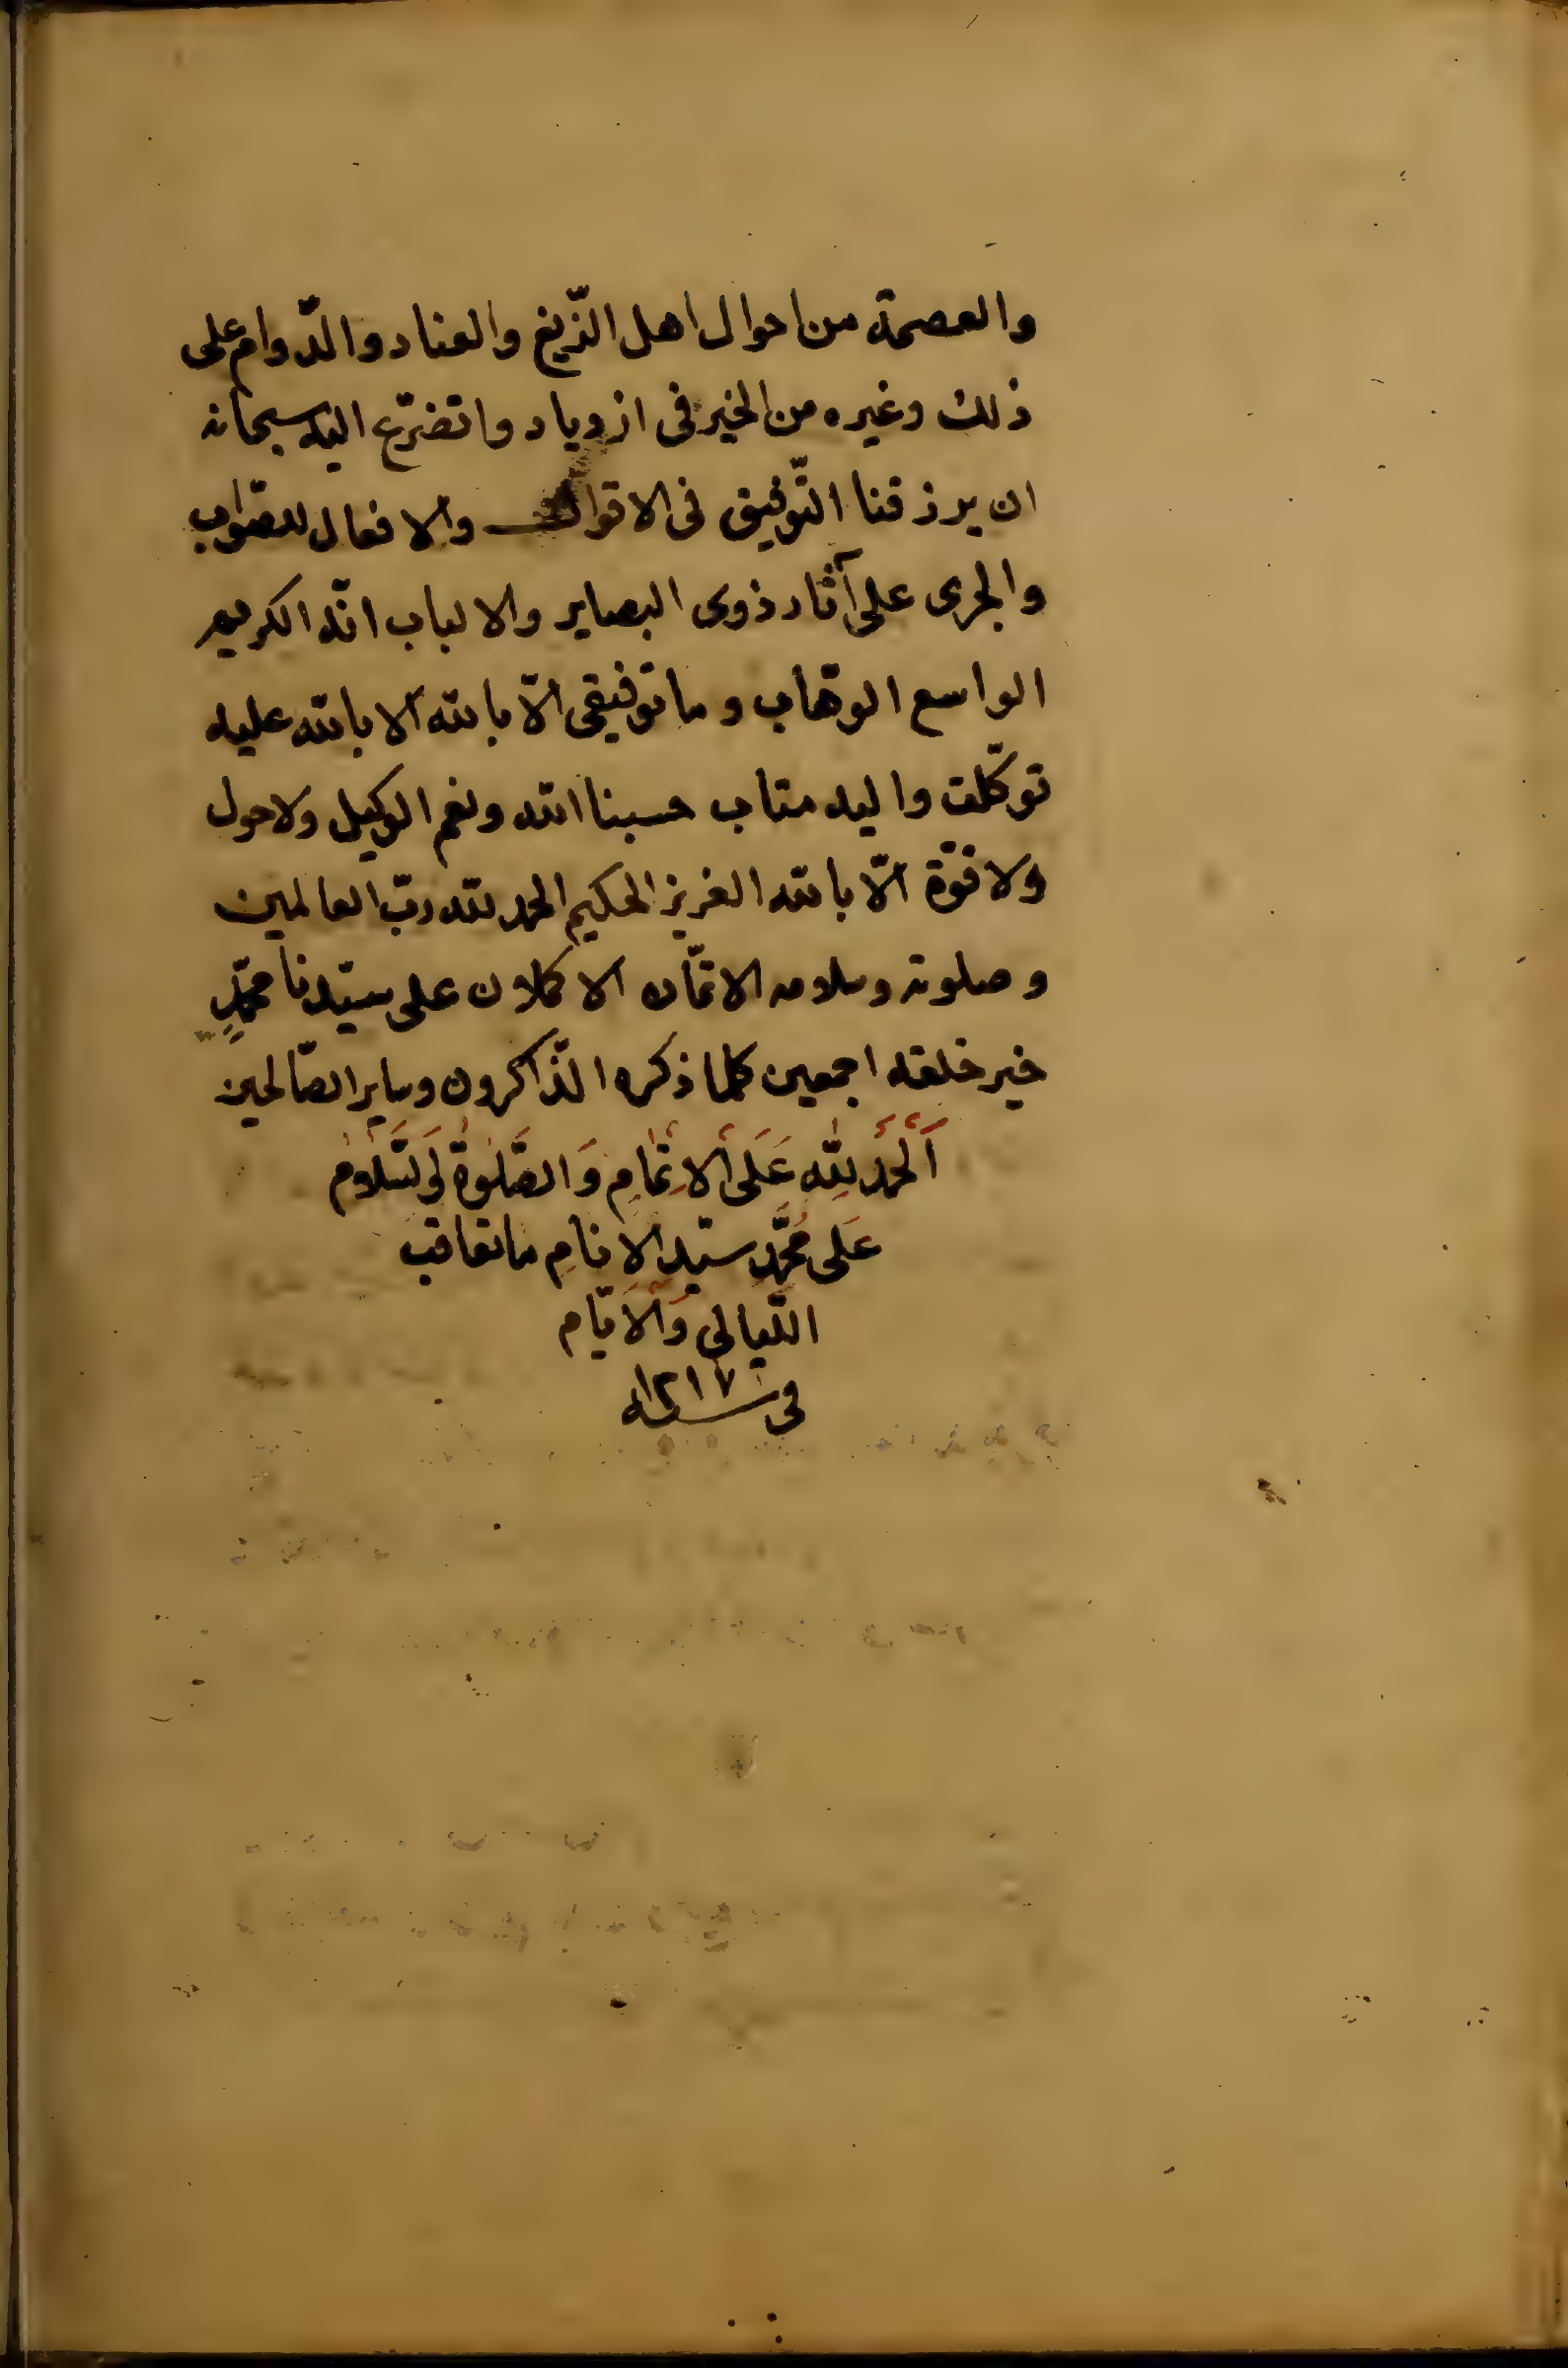 والعصمة من احوال اهل الزّيغ والعناد والدّوام على
ذلك وغيره من الخير فى ازدياد واتضرّع اليه سبحانه
ان يرزقنا التّوفيق فى الاقوال والافعال للصّواب
والجرى على آثار ذوى البصاير والالباب انّه الكريم
الواسع الوهّاب وما توفيقى الّا بالله الا بالله عليه
توكّلت واليه متاب حسبنا الله ونعم الوكيل ولا حول
ولا قوّة الّا بالله العزيز الحكيم الحمد لله ربّ العالمين
وصلوته وسلامه الاتمّان الاكملان على سيّدنا محمّدٍ
خير خلقه اجمعين كلما ذكره الذّاكرون وساير الصّالحين
اَلْحمد لِلّٰه عَلَى الاِتمَامِ وَالصَّلٰوةُ وَالسَّلَامُ
عَلى مُحَمَّد سيّد الانامِ ما تعاقب
اللّيالى وَالْاَيّام
فى سنه ١٢١٧